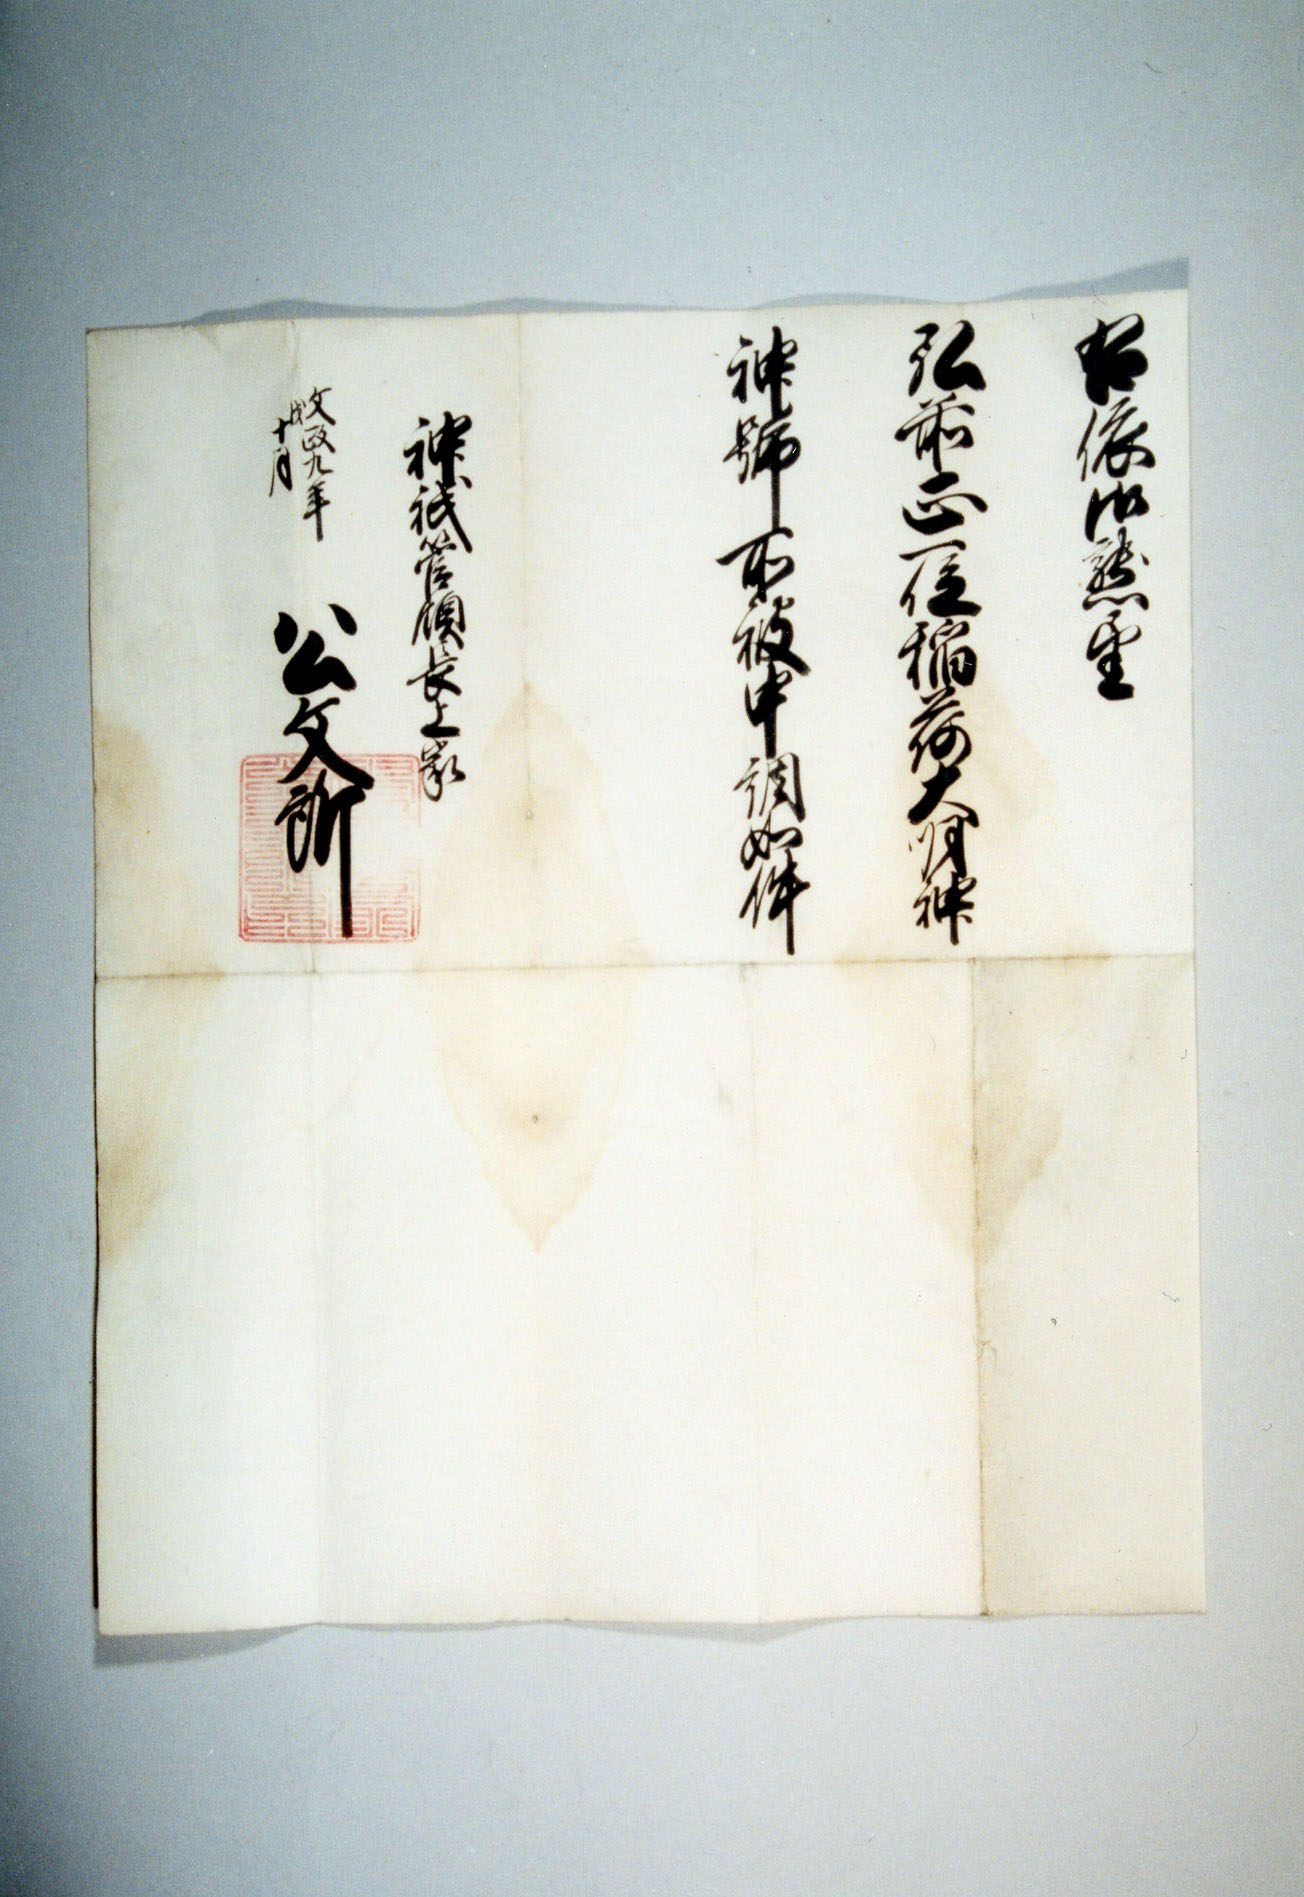 依御懇望
弘前正一位稲荷大明神
神號所被申調如件
神祇管領長上家
公文所
文政九年
戌十月